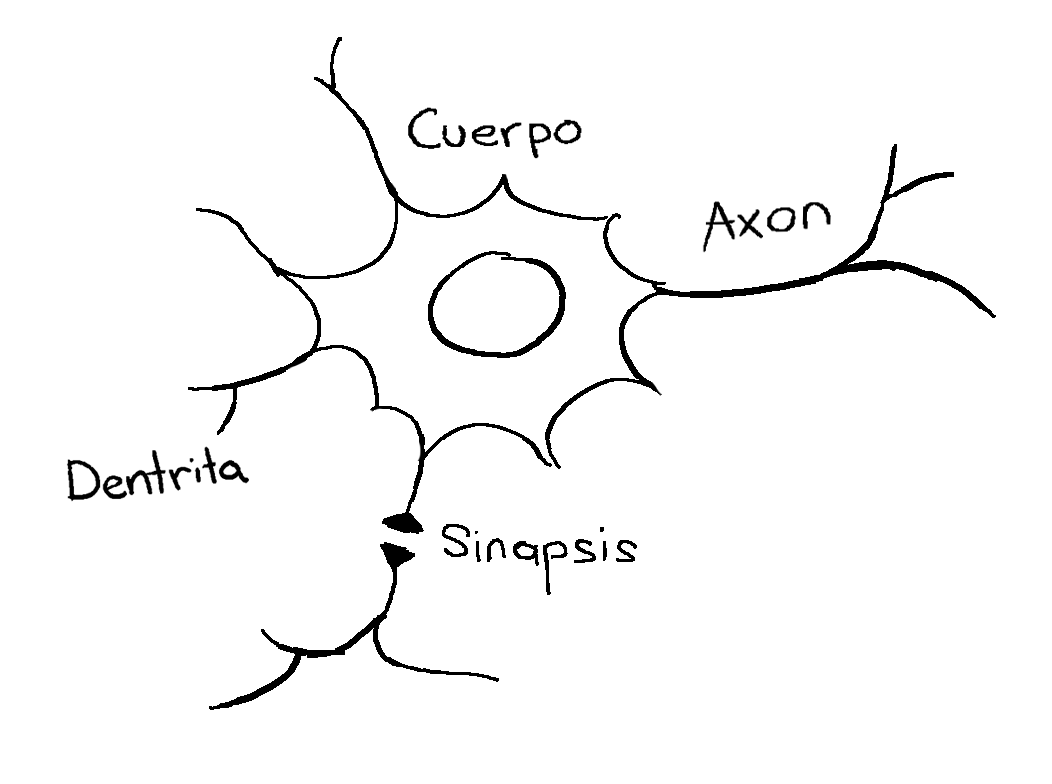 Cuerpo
Axon
Dentrita
Sinapsis